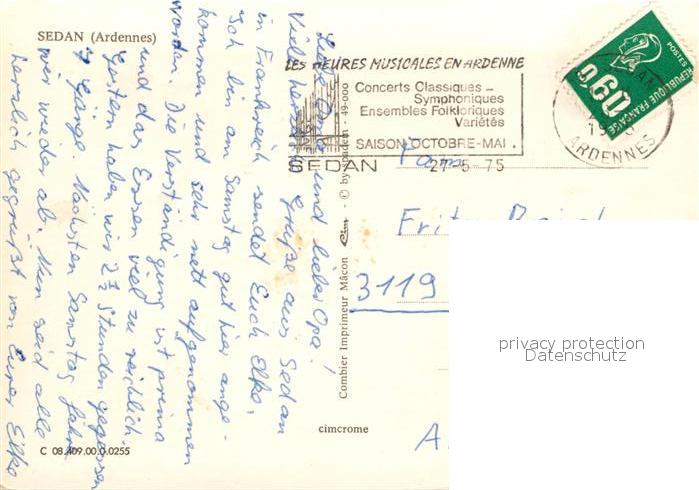 SEDAN (Ardennes)
LES HEURES MUSICALES EN ARDENNE
Concerts Classiques -
Symphoniques
Ensembles Folkloriques
Variétés
SAISON OCTOBRE-MAI.
SEDAN 27-5 75
ARDENNES
0,60
POSTES
REPUBLIQUE FRANÇAISE
Liebe und lieber Opa!
Viele herzliche Grüße aus Sedan
in Frankreich sendet Euch Elke.
Ich bin am Samstag gut hier ange-
kommen und sehr nett aufgenommen
worden. Die Verständigung ist prima
und das Essen viel zu reichlich.
Gestern haben wir 2½ Stunden gegessen
7 Gänge. Nächsten Samstag fahren
wir wieder ab. Nun seid alle
herzlich gegrüßt von Eurer Elke
Fritz
3119
A
Combier Imprimeur Mâcon
cimcrome
C 08.409.00.0.0255
privacy protection
Datenschutz